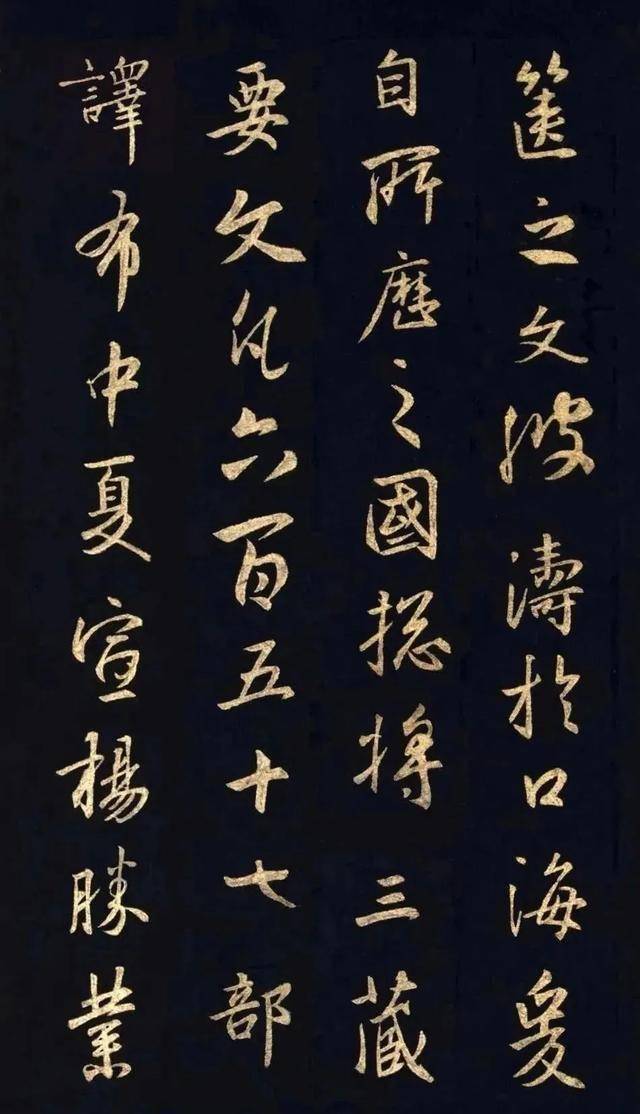 篋之文波濤於口海爰
自所歷之國揔將三藏
要文凡六百五十七部
譯布中夏宣楊勝業